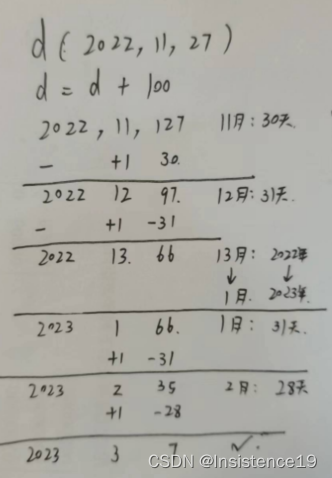 d(2022, 11, 27)
d = d + 100
2022, 11, 127 11月: 30天
- +1 30
2022 12 97. 12月: 31天.
- +1 -31
2022 13. 66 13月: 2022年
↓ ↓
1月. 2023年.
2023 1 66. 1月: 31天.
+1 -31
2023 2 35 2月: 28天
+1 -28
2023 3 7 ✓.
CSDN @Insistence19